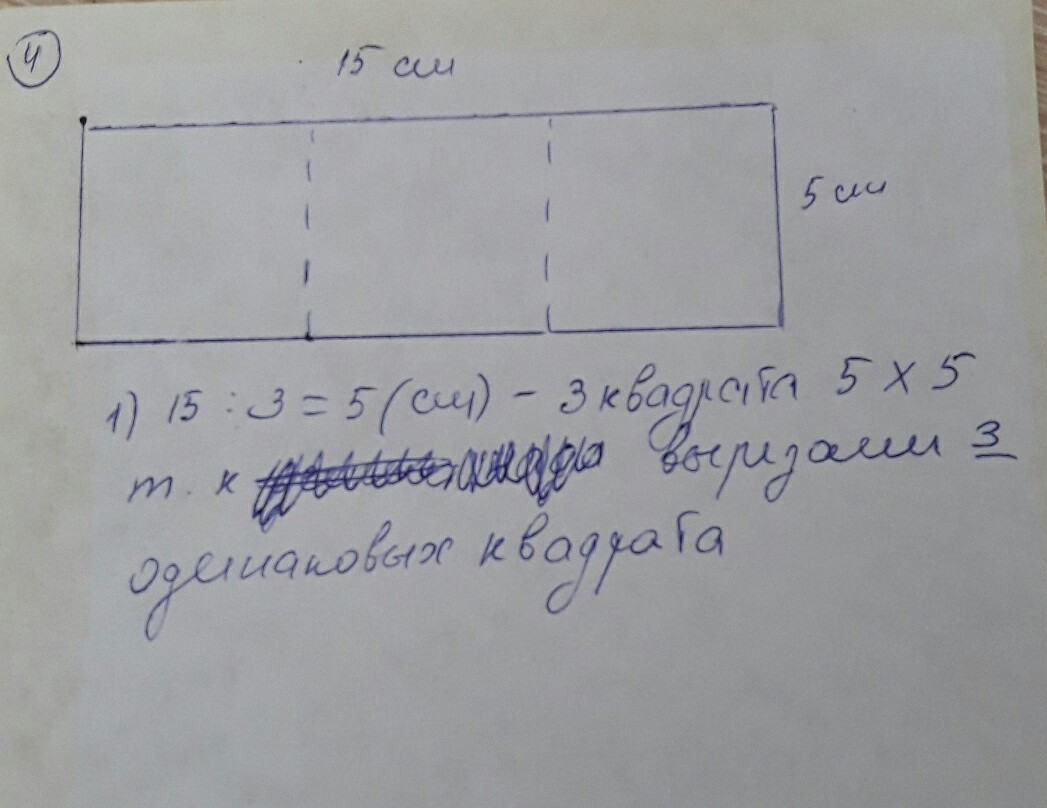 4
15 см
5 см
1) 15 : 3 = 5 (см) - 3 квадрата 5 х 5
т. к вырезали 3
одинаковых квадрата